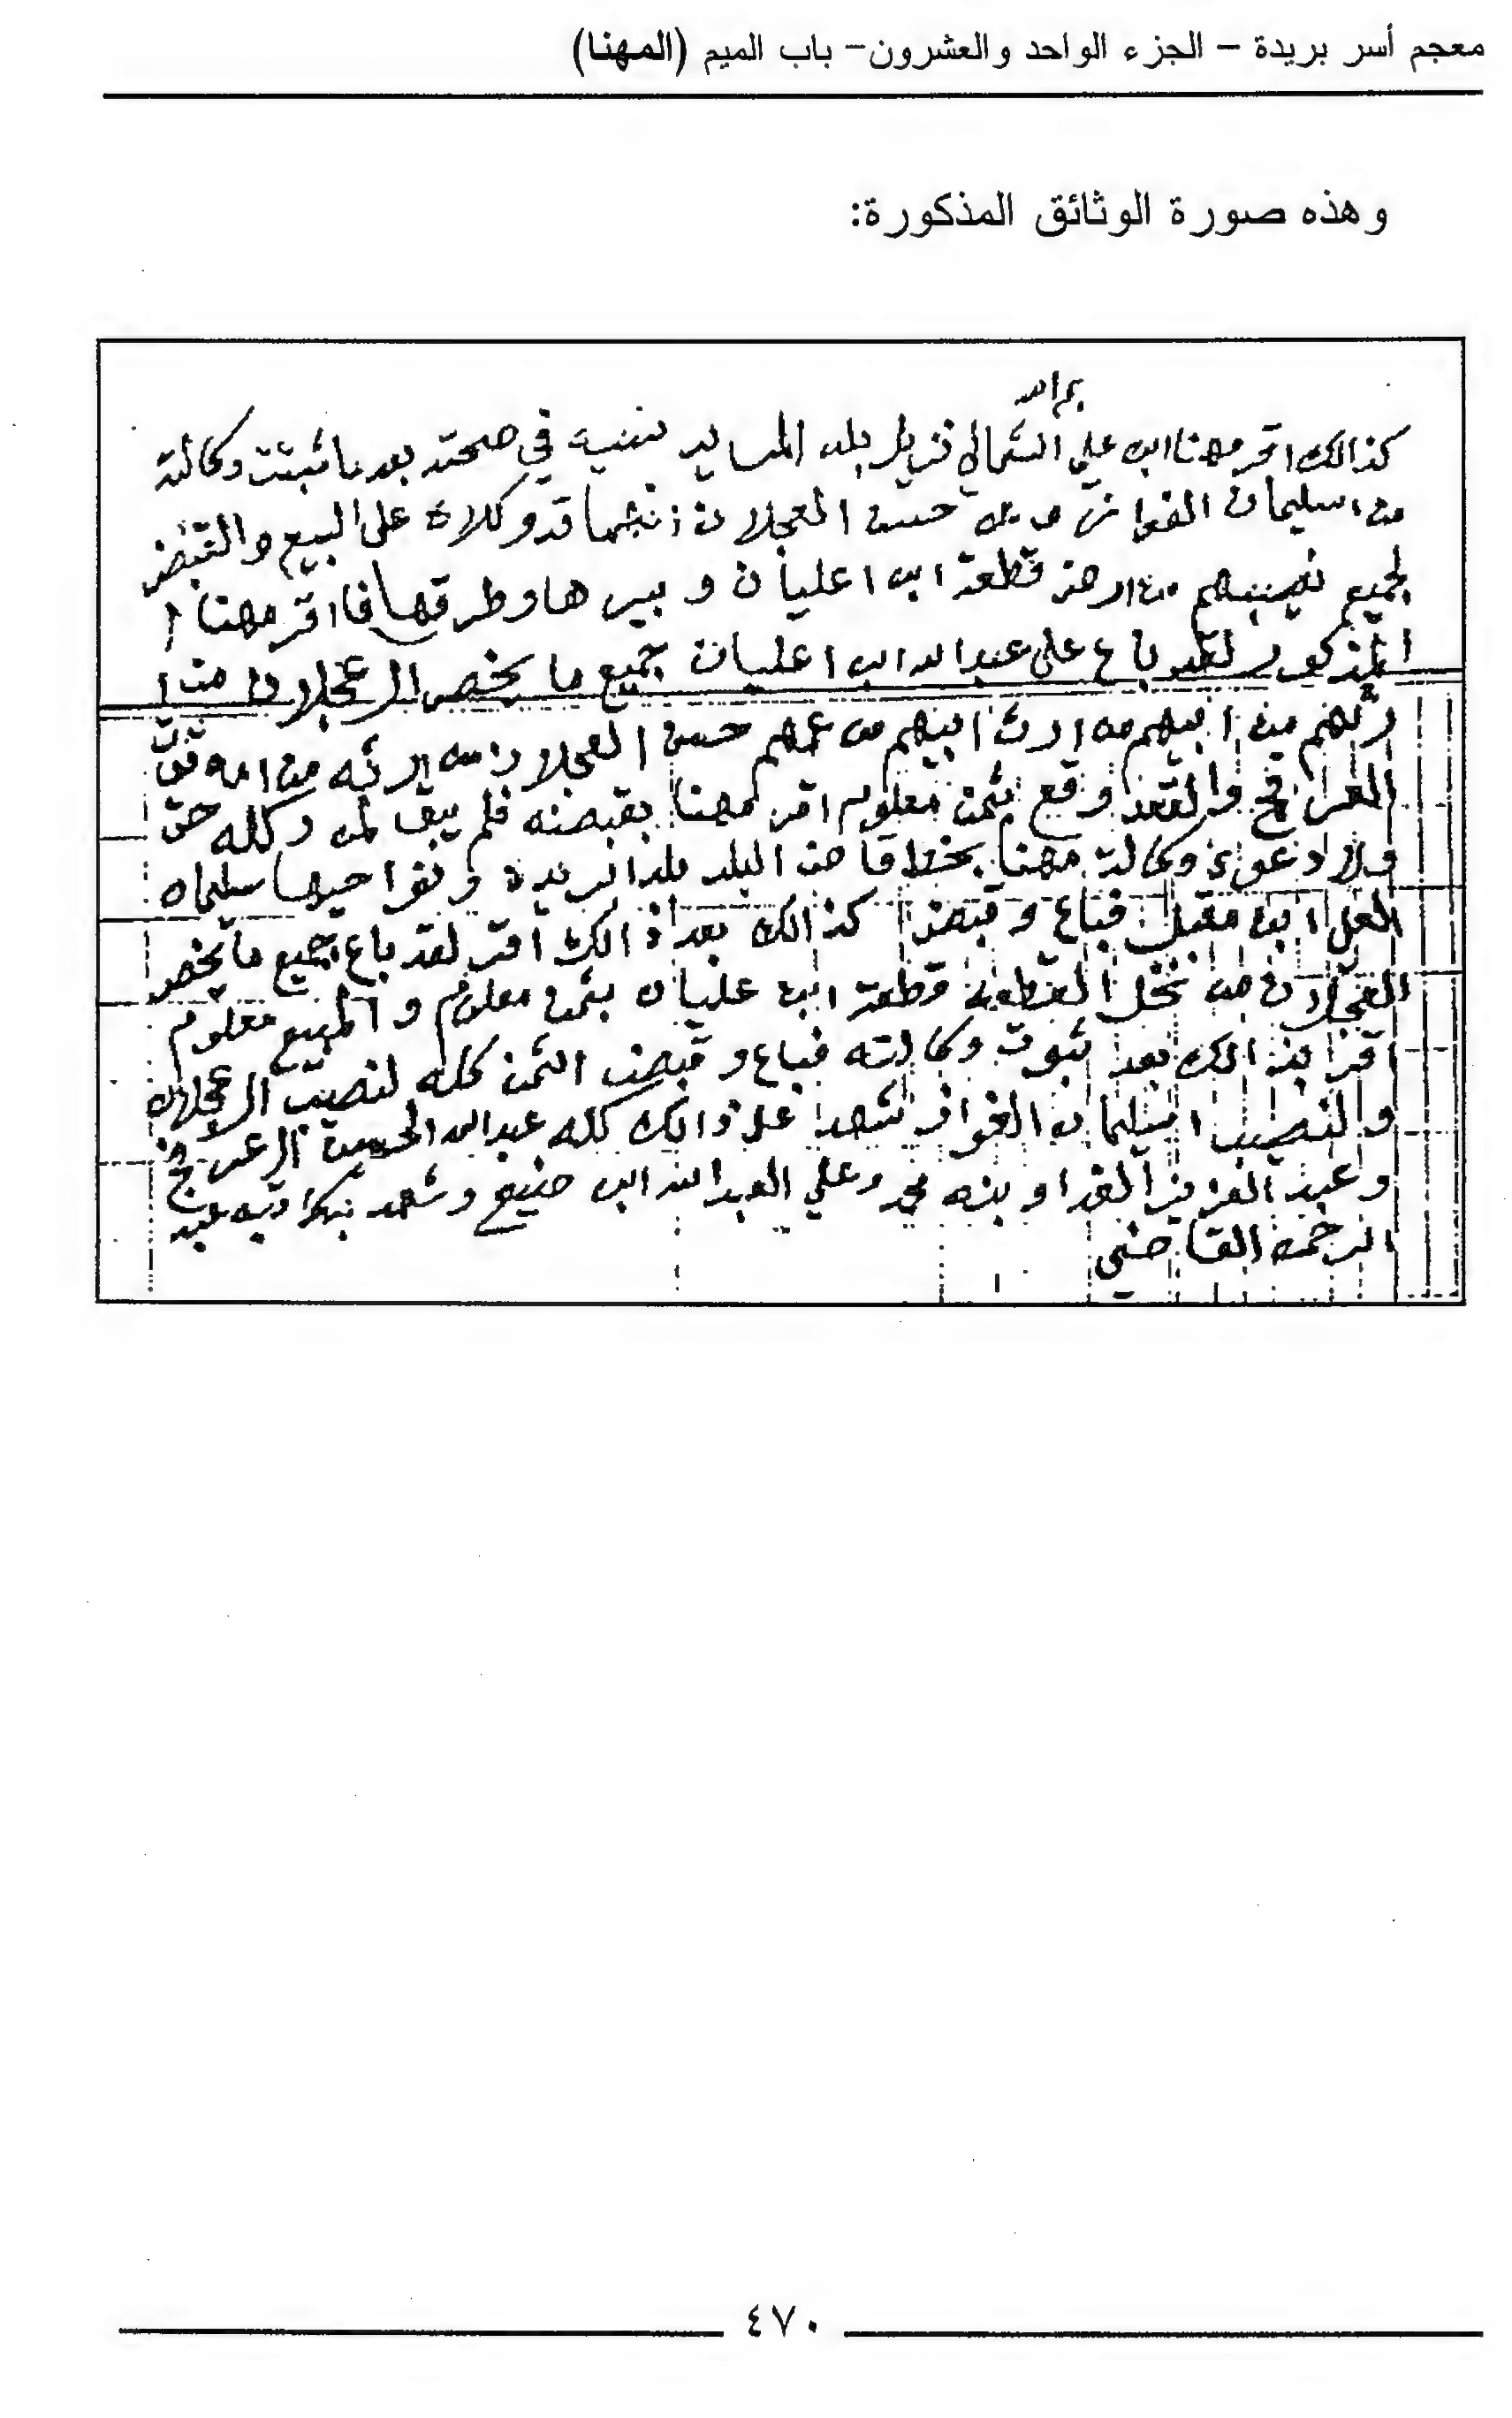 معجم أسر بريدة – الجزء الواحد والعشرون– باب الميم (المهنا)
وهذه صورة الوثائق المذكورة:
كذالك اقر مهنا ابن علي الشمالي نزيل بلد في صحته بعد ما ثبتت وكالته
من اسليمان الفواز حسن العجلان انهما قد وكلاه على البيع والقبض
لجميع نصيبهم من ارض قطعة ابن اعليان وبيرها وطرقها فا اقر مهنا
المذكور لقد باع على عبدالله ابن اعليان جميع ما يخص العجلان من ا
رثهم من ابيهم من ارث ابيهم من عمهم حسن العجلان ارثه من امه
والعقد وقع بثمن معلوم اقر مهنا بقبضه فلم يبق لمن وكله حق
ولا دعوى وكالة مهنا بخط قاض البلد بلد ابريدة ونواحيها سليمان
العلي ابن مقبل فباع وقبض كذالك بعد اذالك اقر لقد باع جميع ما يخص
العجلان من نخل القطعة قطعة ابن عليان بثمن معلوم والمبيع معلوم
اقر بذالك بعد ثبوت وكالته فباع وقبض الثمن كله لنصيب العجلان
والنصيب اسليمان الفواز شهد على ذالك كله عبدالله الحسن
وعبد العزيز وعلي العبدالله ابن منيع وشهد به كاتبه عبد
الرحمن القاضي
٤٧٠